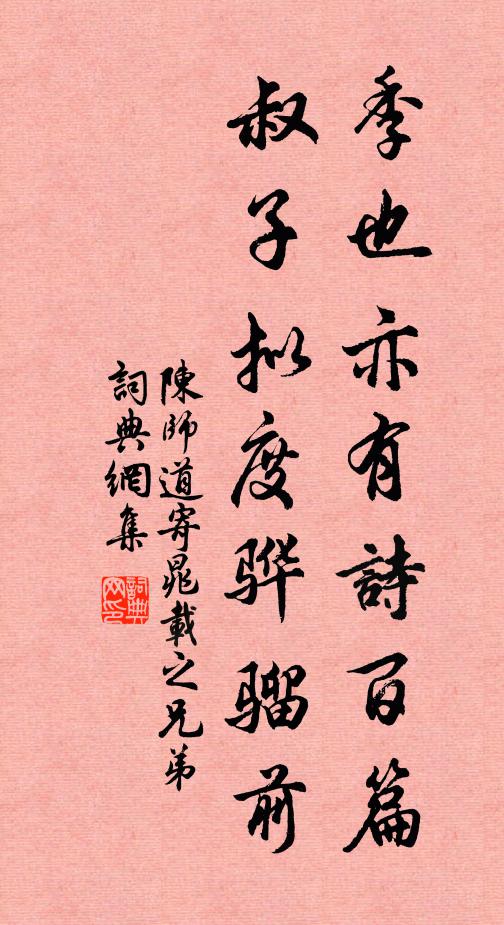 季也亦有詩百篇
叔子拟度骅骝前
陳師道寄晁載之兄弟
詞典網集
詞典网印